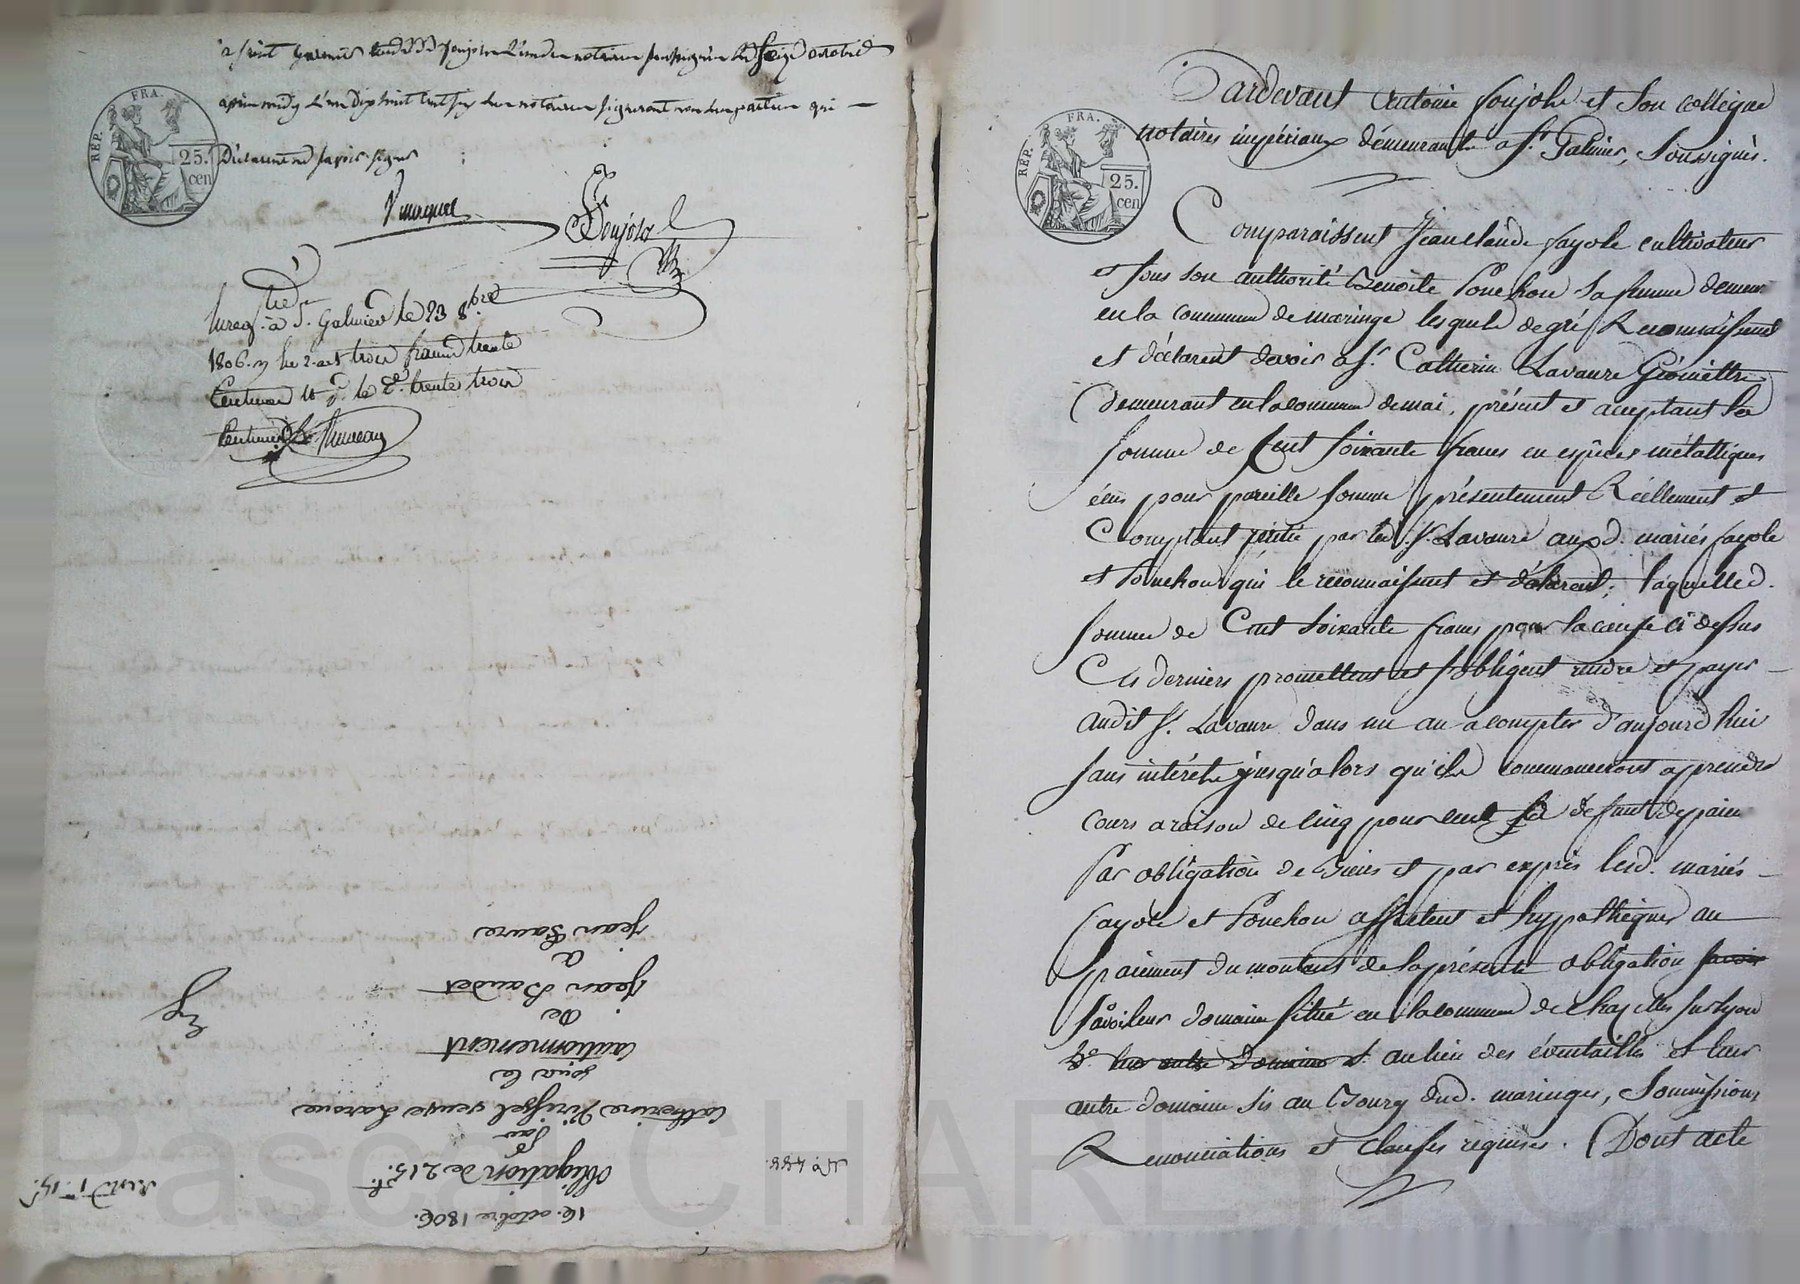 a saint Galmier étude dud Poujola l'un des notaires soussignés le seize octobre
après midy l'an dix huit cent six les notaires signeront non les parties qui
déclarent ne savoir signer
REP. FRA.
25.
cen
Poujola
Enreg. à St. Galmier le 23 8bre
1806. trois francs trente
Centimes le trente trois
Centimes
Jean Faure
à
Jean Baudet
de
Cautionnement
sous la
Catherine Virissel veuve Laroue
Par
Obligation de 215 f.
16. octobre 1806.
N.o 488.
Pascal CHARLYRON
Pardevant Antoine Poujola et son collègue
notaires impériaux demeurants a St Galmier, Soussignés.
REP. FRA.
25.
cen
Comparaissent Jean claude fayole cultivateur
et sous son authorité Benoite Ponchon sa femme demeur
en la commune de maringe lesquels de gré Reconnaissent
et déclarent devoir a Sr Catherin Lavaure Géomettre
Demeurant en la commune de mai, présent et acceptant la
somme de Cent soixante francs en espèces métalliques
ceus pour pareille somme présentement Réellement et
Comptant prêtée par led. Sr Lavaure aux d. mariés fayole
et Ponchon qui le reconnaissent et déclarent; laquelle d.
somme de Cent Soixante francs pour la cause ci dessus
Ces derniers promettent et s'obligent rendre et payer
audit Sr. Lavaure dans un an a compter d'aujourd'hui
sans intérêts jusqu'alors qu'ils commanceront a prendre
cours a raison de cinq pour cent a défaut de paim
Par obligation de Biens et par exprès lesd. mariés
fayole et Ponchon affectent et hypothèquent au
paiement du montant de la présente obligation savoir
savoir leur domaine situé en la commune de Chazelles sur lyon
leur autre domaine et au lieu des éventailles et leur
autre domaine sis au Bourg dud. maringes, Soumissions
Renonciations et clauses requises. Dont acte